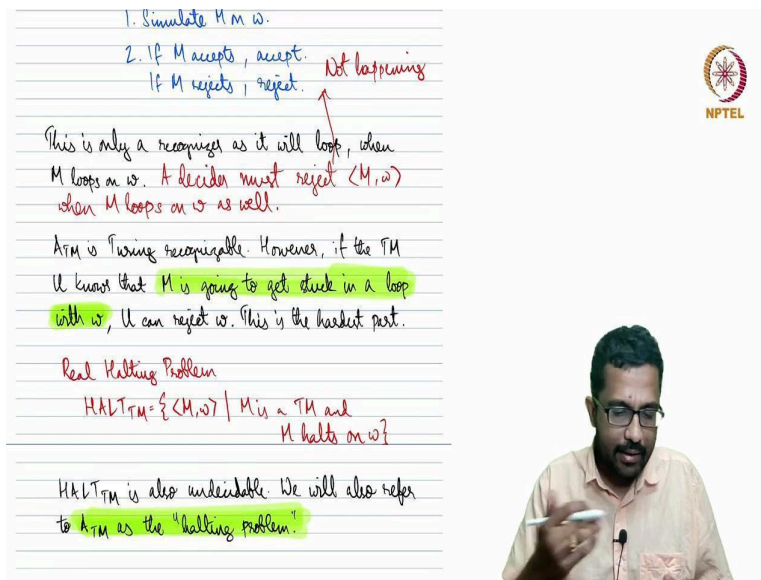 1. Simulate M on w.
2. If M accepts, accept.
If M rejects, reject.
Not happening
NPTEL
This is only a recognizer as it will loop, when
M loops on w. A decider must reject <M, w>
when M loops on w as well.
A_TM is Turing recognizable. However, if the TM
U knows that M is going to get stuck in a loop
with w, U can reject w. This is the hardest part.
Real Halting Problem
HALT_TM = {<M,w> | M is a TM and
M halts on w}
HALT_TM is also undecidable. We will also refer
to A_TM as the "halting problem".